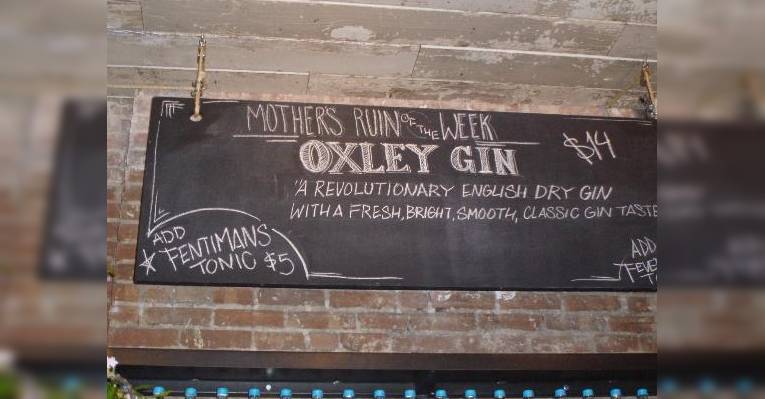 MOTHER'S RUIN OF THE WEEK
OXLEY GIN $14
"A REVOLUTIONARY ENGLISH DRY GIN
WITH A FRESH, BRIGHT, SMOOTH, CLASSIC GIN TASTE
ADD
FENTIMANS
TONIC $5
ADD